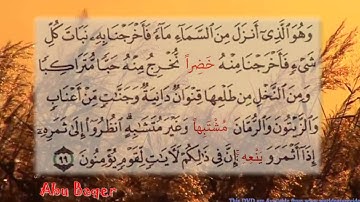 وَهُوَ ٱلَّذِىٓ أَنزَلَ مِنَ ٱلسَّمَآءِ مَآءً فَأَخْرَجْنَا بِهِۦ نَبَاتَ كُلِّ
شَىْءٍ فَأَخْرَجْنَا مِنْهُ خَضِرًا نُّخْرِجُ مِنْهُ حَبًّا مُّتَرَاكِبًا
وَمِنَ ٱلنَّخْلِ مِن طَلْعِهَا قِنْوَانٌ دَانِيَةٌ وَجَنَّٰتٍ مِّنْ أَعْنَابٍ
وَٱلزَّيْتُونَ وَٱلرُّمَّانَ مُشْتَبِهًا وَغَيْرَ مُتَشَٰبِهٍ ٱنظُرُوٓا۟ إِلَىٰ ثَمَرِهِۦٓ
إِذَآ أَثْمَرَ وَيَنْعِهِۦٓ إِنَّ فِى ذَٰلِكُمْ لَءَايَٰتٍ لِّقَوْمٍ يُؤْمِنُونَ ٩٩
Abu Baqer
This DVD are Available from